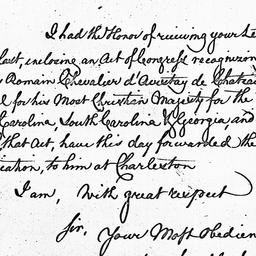 I had the Honor of receiving your Le
last, inclosing an Act of Congress recognizing
Romain Chevalier d'avistay de Chateau
for his Most Christian Majesty for the
Carolina, South Carolina & Georgia, and
that Act, have this day forwarded the
ication, to him at Charleston
I am, With great respect
Sir, Your Most Obedien